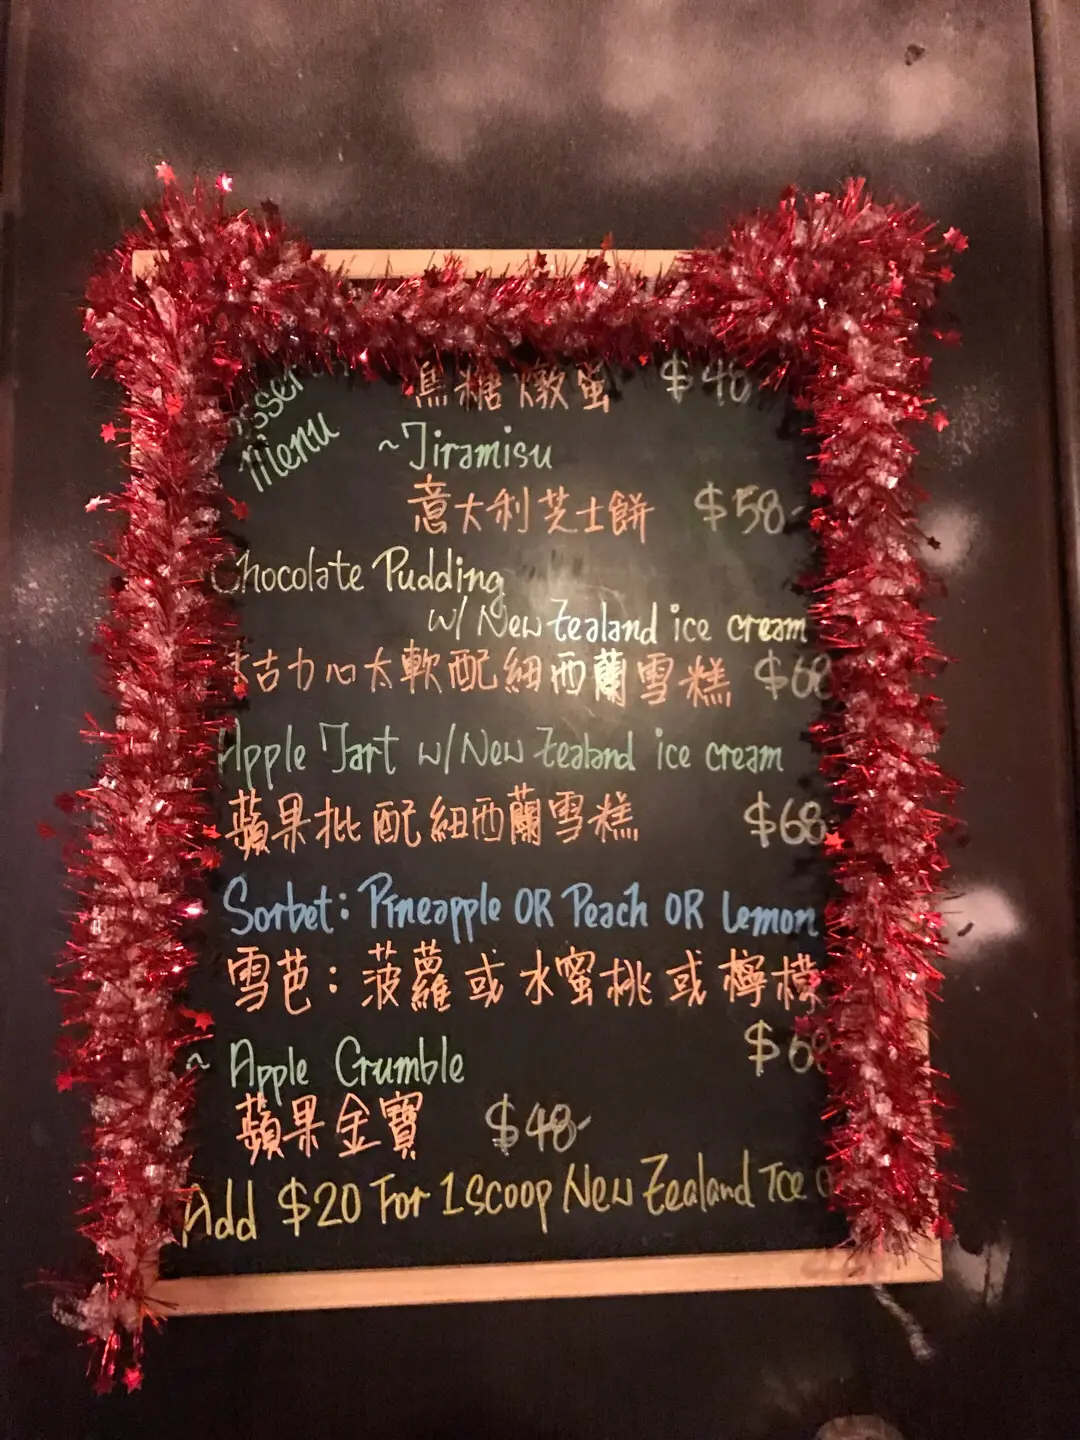 Menu
焦糖燉蛋 $48
~Tiramisu
意大利芝士餅 $58-
Chocolate Pudding
w/ New Zealand ice cream
古力心太軟配紐西蘭雪糕 $68
Apple Tart w/ New Zealand ice cream
蘋果批配紐西蘭雪糕 $68-
Sorbet: Pineapple OR Peach OR Lemon
雪芭：菠蘿或水蜜桃或檸檬
$68
~ Apple Crumble
蘋果金寶 $48-
Add $20 For 1 Scoop New Zealand Ice